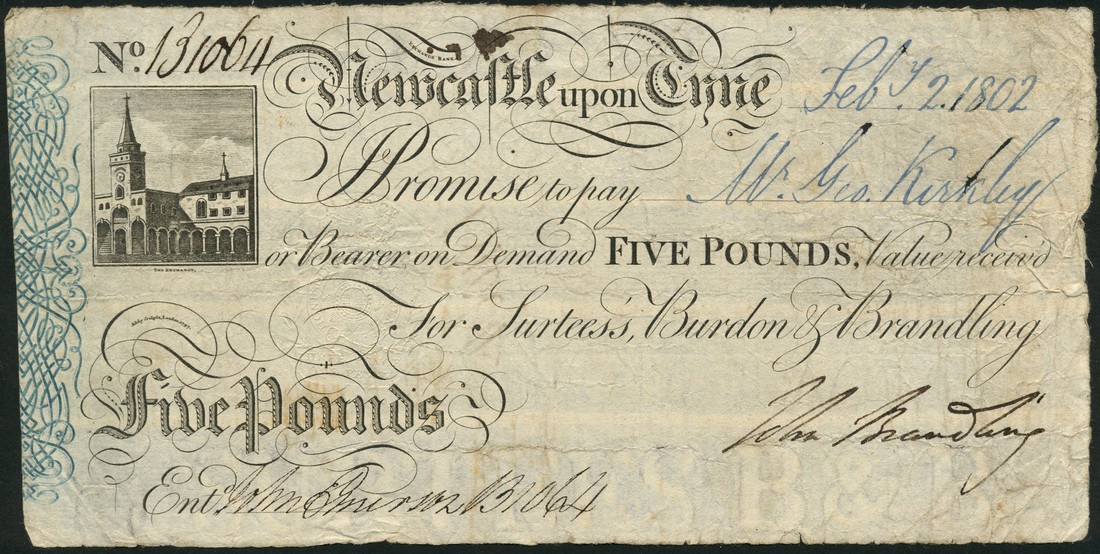 No. 131064
EXCHANGE BANK
Newcastle upon Tyne Feby. 2. 1802
I Promise to pay Mr. Geo. Kirkley
or Bearer on Demand FIVE POUNDS, Value receiv'd
THE EXCHANGE.
For Surteess, Burdon & Brandling
Five Pounds
John Brandling
Entd John 131064